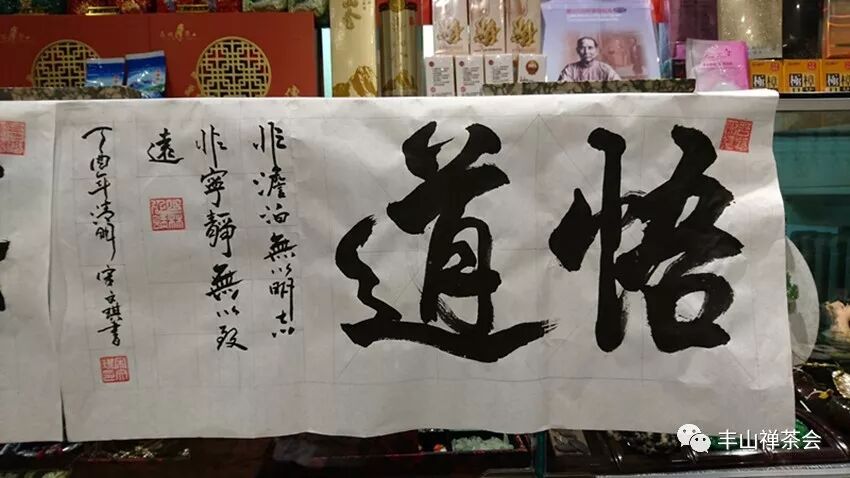 悟道
非澹泊無以明志
非寧靜無以致
遠
丁酉年清明 宋文琪書
丰山禅茶会